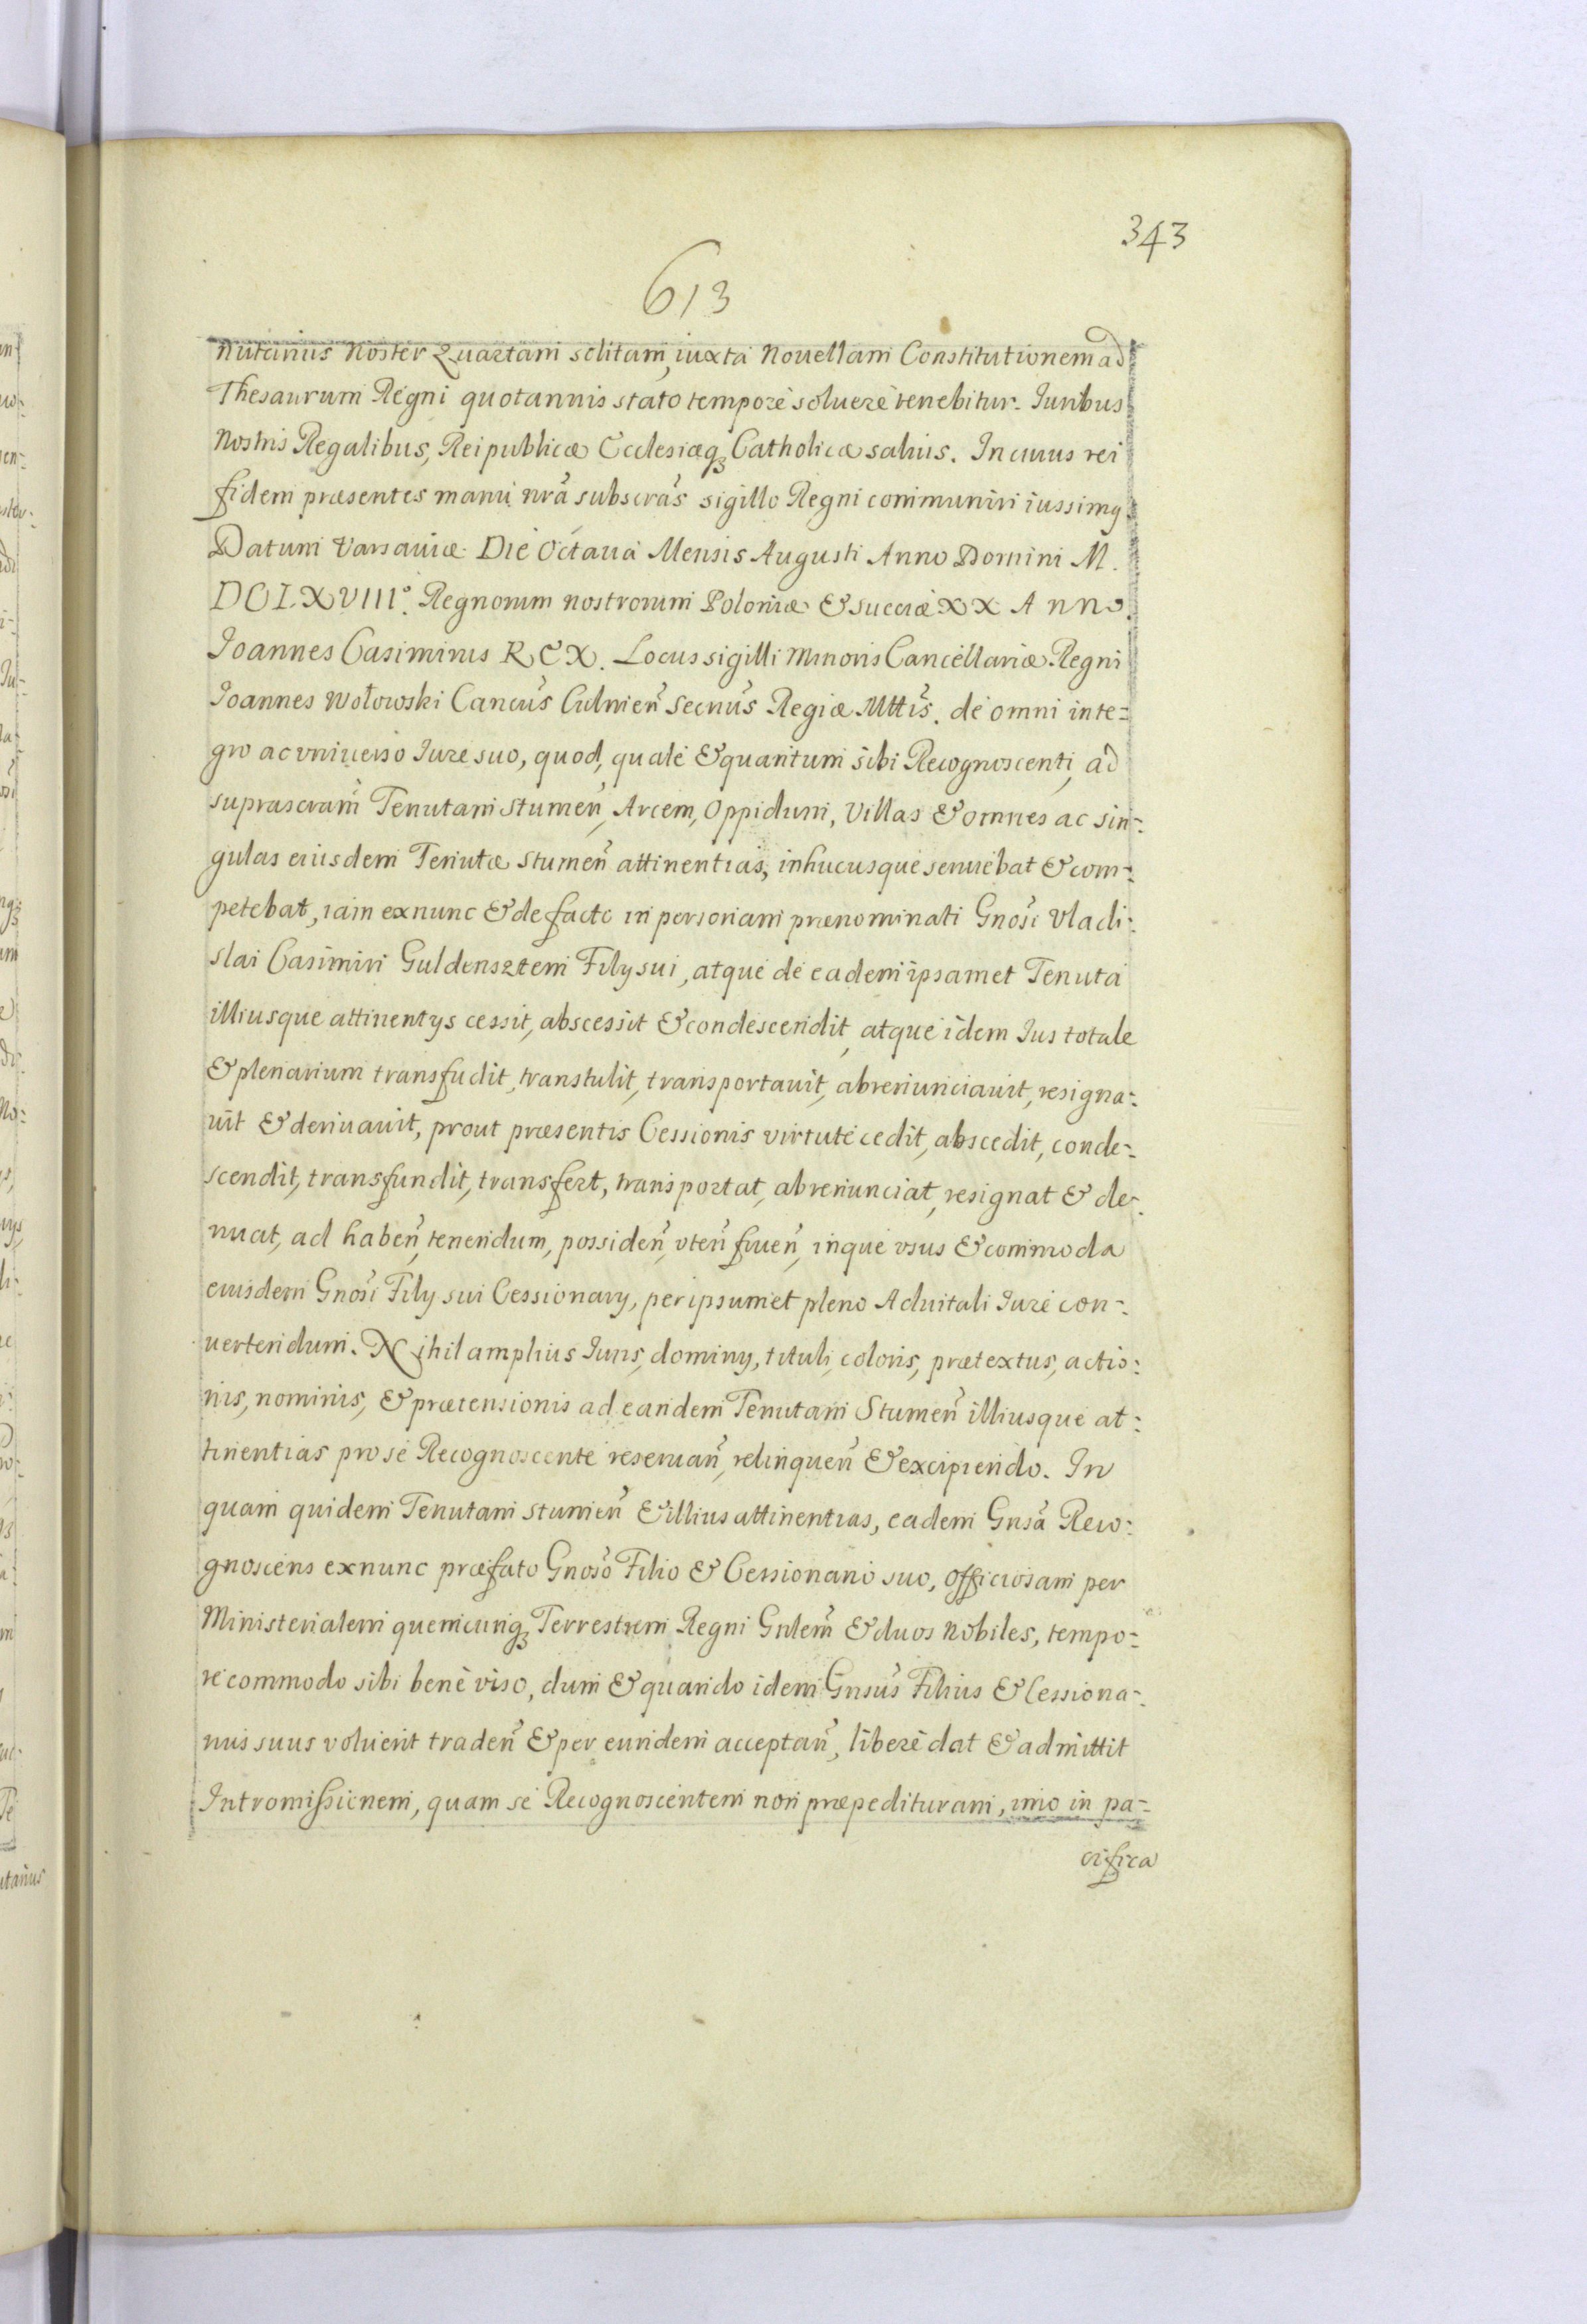 343
613
nutarius Noster Quartam solitam, iuxta Nouellam Constitutionem ad
Thesaurum Regni quotannis stato tempore soluere tenebitur. Iuribus
Nostris Regalibus, Reipublicæ Ecclesiæq₃ Catholicæ saluis. In cuius rei
fidem præsentes manu nrã subscrãs sigillo Regni communiri iussimꝰ.
Datum Varsauiæ. Die Octaua Mensis Augusti Anno Domini M.
DCLXVIII°. Regnorum nostrorum Poloniæ & Sueciæ XX Anno.
Ioannes Casimirus REX. Locus sigilli Minoris Cancellariæ Regni
Ioannes Wołowski Cancus̃ Culmień Secrius̃ Regiæ Mttis̃. de omni inte-
gro ac vniuerso Iure suo, quod, quale & quantum sibi Recognoscenti, ad
suprascram̃ Tenutam Stumeñ, Arcem, Oppidum, Villas & omnes ac sin-
gulas eiusdem Tenutæ Stumeñ attinentias, inhucusque seruiebat & com-
petebat, iam exnunc & de facto in personam prænominati Gnosĩ Vladi-
slai Casimiri Guldensztern Filij sui, atque de eadem ipsamet Tenuta
illiusque attinentijs cessit, abscessit & condescendit, atque idem Ius totale
& plenarium transfudit, transtulit, transportauit, abrenunciauit, resigna-
uit & deriuauit, prout præsentis Cessionis virtute cedit, abscedit, conde-
scendit, transfundit, transfert, transportat, abrenunciat, resignat & de-
riuat, ad habeñ, tenendum, possideñ, vteñ frueñ, inque vsus & commoda
eiusdem Gnosĩ Filij sui Cessionarij, per ipsummet pleno Aduitali Iure con-
uertendum. Nihil amplius Iuris, dominij, tituli, coloris, prætextus, actio-
nis, nominis, & prætensionis ad eandem Tenutam Stumeñ illiusque at-
tinentias pro se Recognoscente reseruañ, relinqueñ & excipiendo. In
quam quidem Tenutam Stumeñ & illius attinentias, eadem Gnsã Reco-
gnoscens exnunc præfato Gnosõ Filio & Cessionario suo, officiosam per
Ministerialem quemcunq₃ Terrestrem Regni Gnlem̃ & duos Nobiles, tempo-
re commodo sibi bene viso, dum & quando idem Gnsus̃ Filius & Cessiona-
rius suus voluerit tradeñ & per eundem acceptañ, libere dat & admittit
Intromissionem, quam se Recognoscentem non præpedituram, imo in pa-
cifica